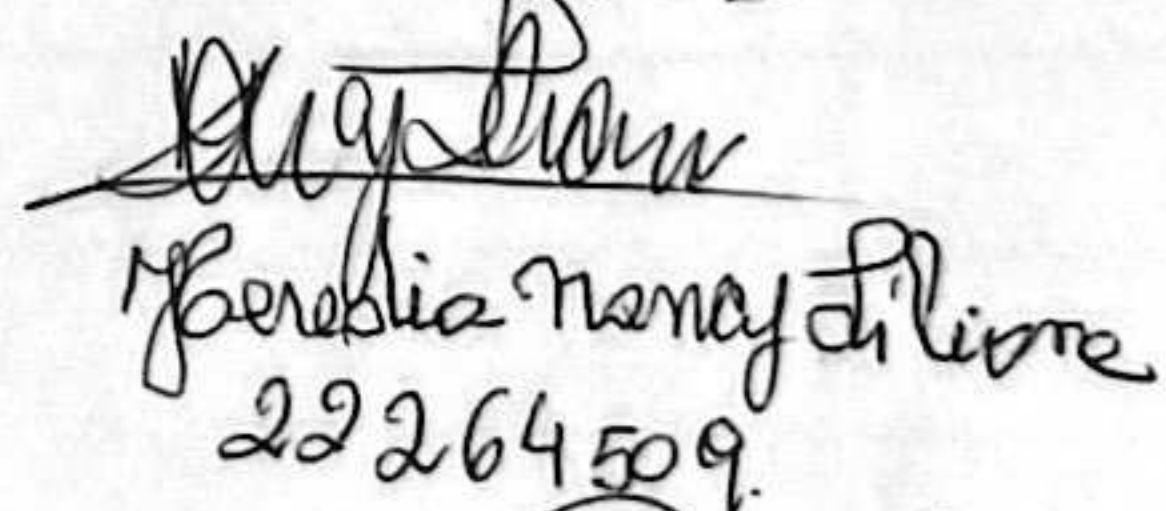 Heredia Nancy Liliana
22264509.